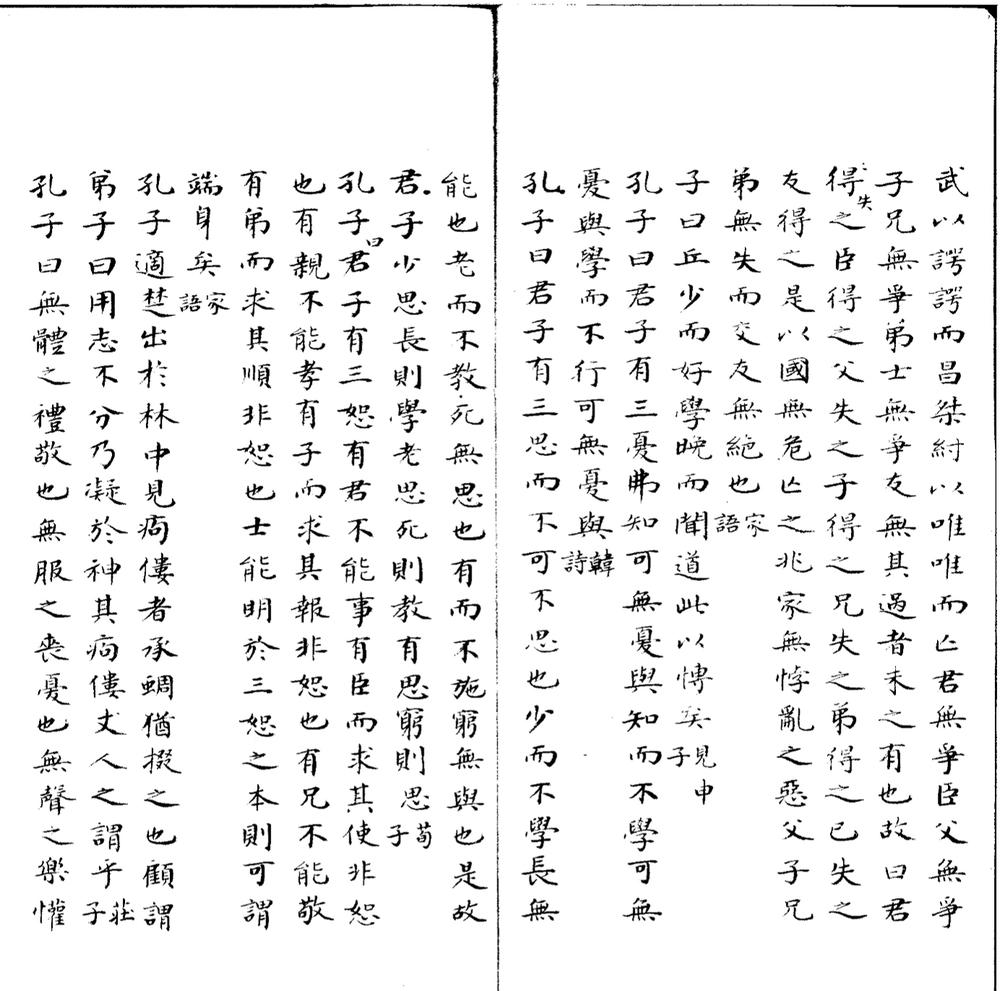 武以諤諤而昌桀紂以唯唯而亡君無爭臣父無爭
子兄無爭弟士無爭友無其過者未之有也故曰君
得之臣得之父失之子得之兄失之弟得之已失之
失
友得之是以國無危亡之兆家無悖亂之惡父子兄
弟無失而交友無絕也家語
子曰丘少而好學晚而聞道此以慱矣見申子
孔子曰君子有三憂弗知可無憂與知而不學可無
憂與學而不行可無憂與韓詩
孔子曰君子有三思而不可不思也少而不學長無
能也老而不教死無思也有而不施窮無與也是故
君子少思長則學老思死則教有思窮則思荀子
孔子曰君子有三恕有君不能事有臣而求其使非恕
也有親不能孝有子而求其報非恕也有兄不能敬
有弟而求其順非恕也士能明於三恕之本則可謂
端身矣家語
孔子適楚出於林中見痀僂者承蜩猶掇之也顧謂
弟子曰用志不分乃凝於神其痀僂丈人之謂乎莊子
孔子曰無體之禮敬也無服之喪憂也無聲之樂懽